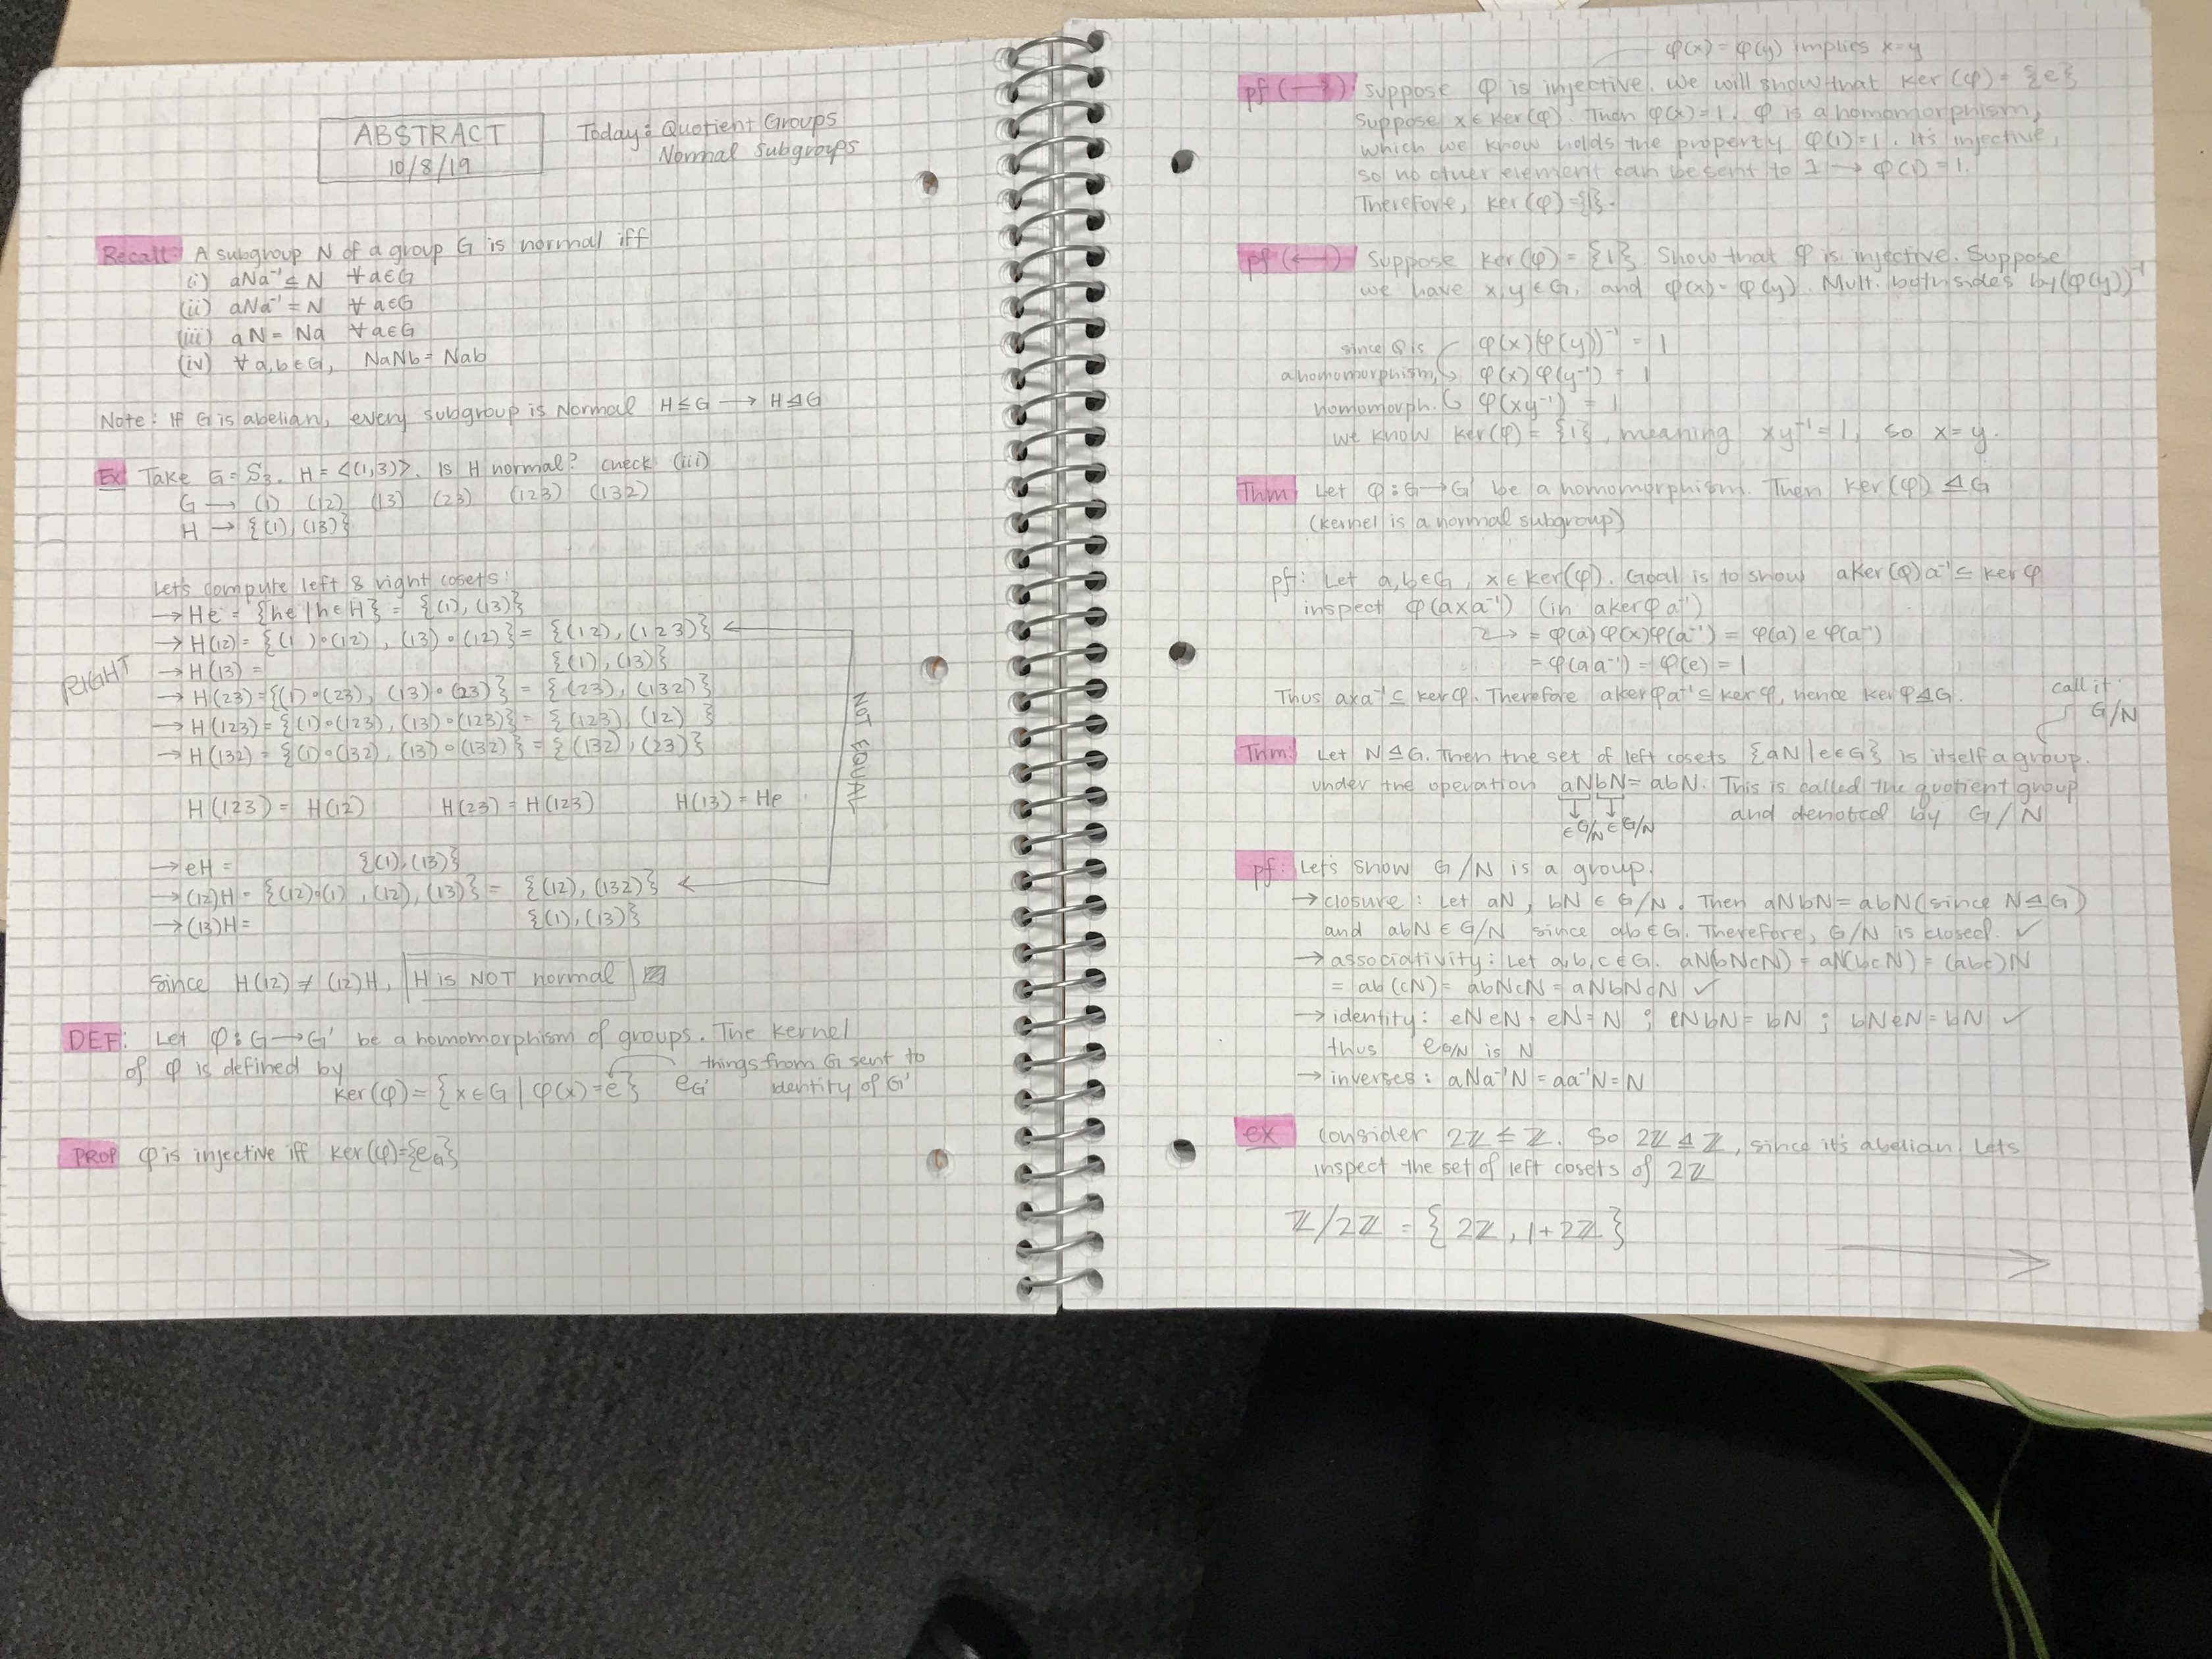 ABSTRACT
10/8/19
Today: Quotient Groups
Normal Subgroups
Recall: A subgroup N of a group G is normal iff
(i) aNa⁻¹ ≤ N ∀ a∈G
(ii) aNa⁻¹ = N ∀ a∈G
(iii) aN = Na ∀ a∈G
(iv) ∀ a,b∈G, NaNb = Nab
Note: If G is abelian, every subgroup is Normal H≤G → H⊴G
Ex Take G = S₃. H = <(1,3)>. Is H normal? check (iii)
G → (1) (12) (13) (23) (123) (132)
H → {(1), (13)}
Let's compute left & right cosets:
RIGHT
→ He = {he | h∈H} = {(1), (13)}
→ H(12) = {(1)∘(12), (13)∘(12)} = {(12), (123)}
→ H(13) = {(1), (13)}
→ H(23) = {(1)∘(23), (13)∘(23)} = {(23), (132)}
→ H(123) = {(1)∘(123), (13)∘(123)} = {(123), (12)}
→ H(132) = {(1)∘(132), (13)∘(132)} = {(132), (23)}
NOT EQUAL
H(123) = H(12) H(23) = H(123) H(13) = He
→ eH = {(1), (13)}
→ (12)H = {(12)∘(1), (12), (13)} = {(12), (132)}
→ (13)H = {(1), (13)}
Since H(12) ≠ (12)H, H is NOT normal
DEF: Let φ: G → G' be a homomorphism of groups. The kernel
of φ is defined by
ker(φ) = {x∈G | φ(x) = e} e_G' things from G sent to
identity of G'
PROP φ is injective iff ker(φ) = {e_G}
φ(x) = φ(y) implies x=y
pf (→) Suppose φ is injective. We will show that ker(φ) = {e}
Suppose x∈ker(φ). Then φ(x) = 1. φ is a homomorphism,
which we know holds the property φ(1) = 1. It's injective,
so no other element can be sent to 1 → φ(1) = 1.
Therefore, ker(φ) = {1}.
pf (←) Suppose ker(φ) = {1}. Show that φ is injective. Suppose
we have x,y∈G, and φ(x) = φ(y). Mult. both sides by (φ(y))⁻¹
since φ is φ(x)(φ(y))⁻¹ = 1
a homomorphism, φ(x)φ(y⁻¹) = 1
homomorph. φ(xy⁻¹) = 1
we know ker(φ) = {1}, meaning xy⁻¹ = 1, so x = y.
Thm: Let φ: G → G' be a homomorphism. Then ker(φ) ⊴ G
(kernel is a normal subgroup)
pf: Let a,b∈G, x∈ker(φ). Goal is to show aker(φ)a⁻¹ ⊆ kerφ
inspect φ(axa⁻¹) (in akerφa⁻¹)
→ = φ(a)φ(x)φ(a⁻¹) = φ(a) e φ(a⁻¹)
= φ(aa⁻¹) = φ(e) = 1
Thus axa⁻¹ ⊆ kerφ. Therefore akerφa⁻¹ ⊆ kerφ, hence kerφ⊴G.
call it
G/N
Thm: Let N⊴G. Then the set of left cosets {aN | e∈G} is itself a group.
under the operation aNbN = abN. This is called the quotient group
∈ G/N ∈ G/N and denoted by G/N
pf: Let's show G/N is a group.
→ closure: Let aN, bN ∈ G/N. Then aNbN = abN (since N⊴G)
and abN ∈ G/N since ab∈G. Therefore, G/N is closed. ✓
→ associativity: Let a,b,c∈G. aN(bNcN) = aN(bcN) = (abc)N
= ab(cN) = abNcN = aNbNcN ✓
→ identity: eNeN = eN = N ; eNbN = bN ; bNeN = bN ✓
thus e_G/N is N
→ inverses: aNa⁻¹N = aa⁻¹N = N
ex Consider 2ℤ ≤ ℤ. So 2ℤ ⊴ ℤ, since it's abelian. Lets
inspect the set of left cosets of 2ℤ
ℤ/2ℤ = {2ℤ, 1+2ℤ}